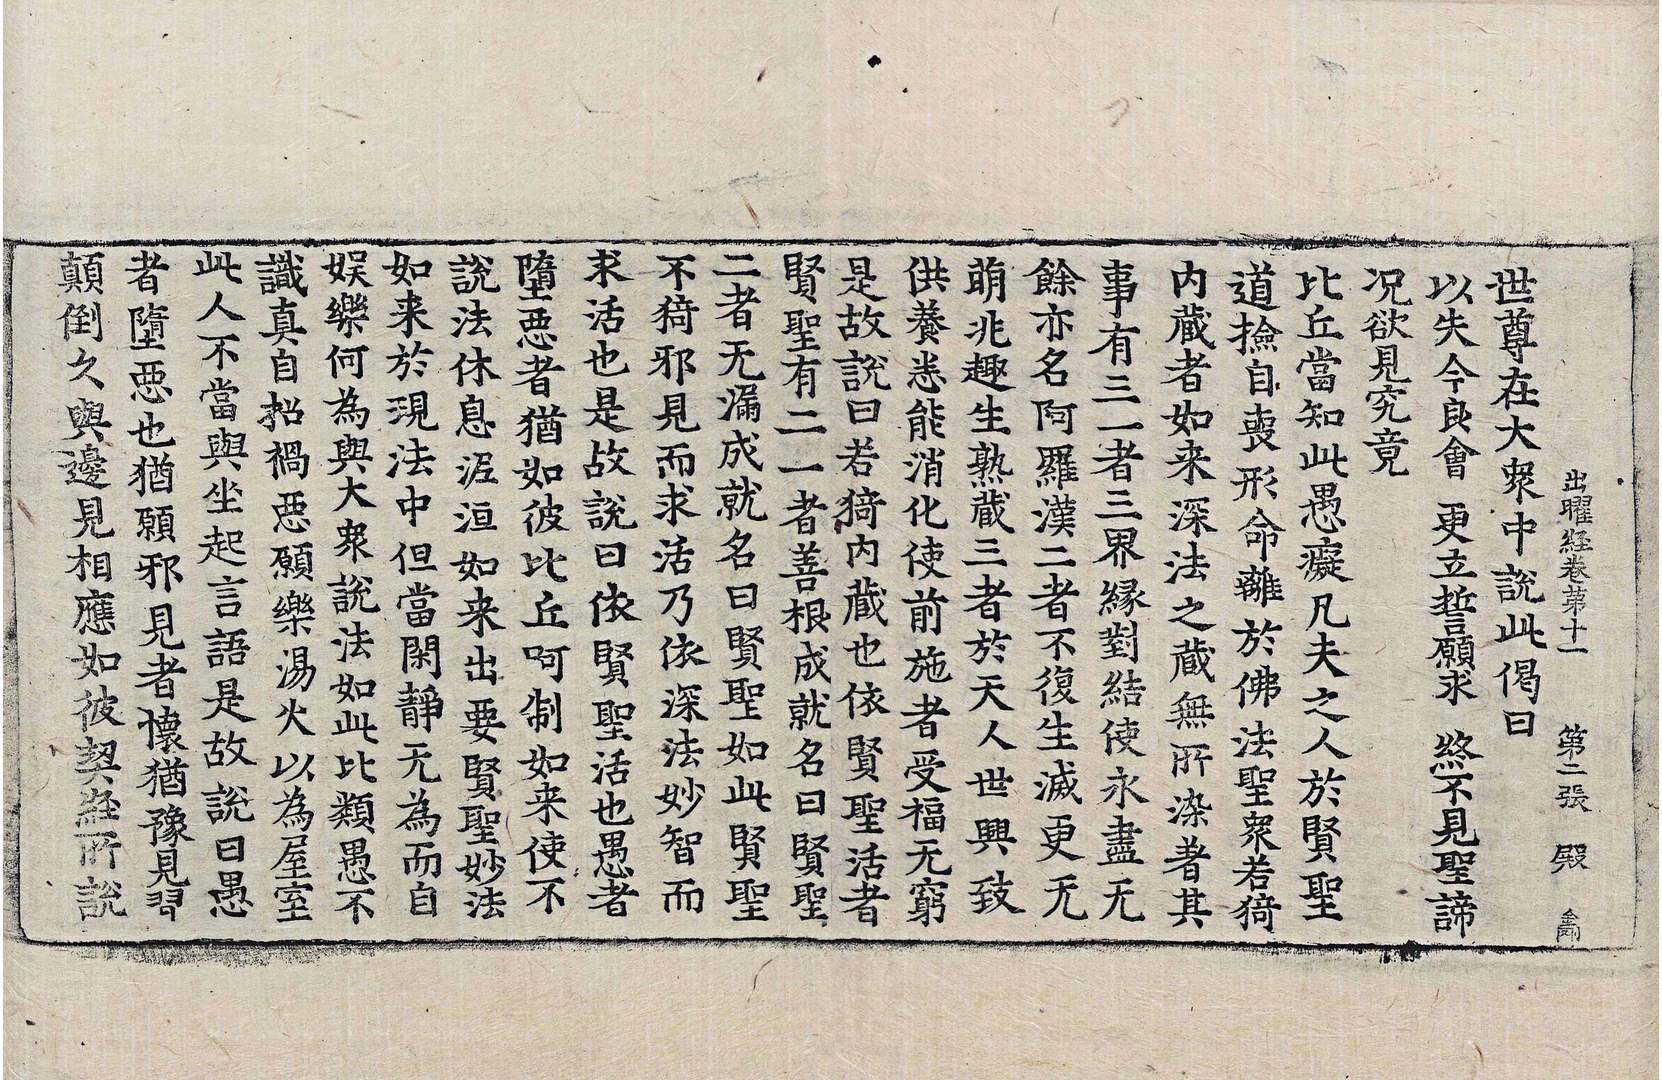 出曜経卷第十一 第二張 殿
世尊在大衆中說此偈曰
以失今良會 更立誓願求 終不見聖諦
况欲見究竟
比丘當知此愚癡凡夫之人於賢聖
道撿自喪形命離於佛法聖衆若猗
内藏者如来深法之藏無所染著其
事有三一者三界緣對結使永盡无
餘亦名阿羅漢二者不復生滅更无
萌兆趣生熟藏三者於天人世興致
供養悉能消化使前施者受福无窮
是故說曰若猗内藏也依賢聖活者
賢聖有二一者善根成就名曰賢聖
二者无漏成就名曰賢聖如此賢聖
不猗邪見而求活乃依深法妙智而
求活也是故說曰依賢聖活也愚者
墮惡者猶如彼比丘呵制如来使不
說法休息涅洹如来出要賢聖妙法
如来於現法中但當閑靜无為而自
娛樂何為與大衆說法如此比類愚不
識真自招禍惡願樂湯火以為屋室
此人不當與坐起言語是故說曰愚
者墮惡也猶願邪見者懷猶豫見習
顛倒久與邊見相應如彼契経所說